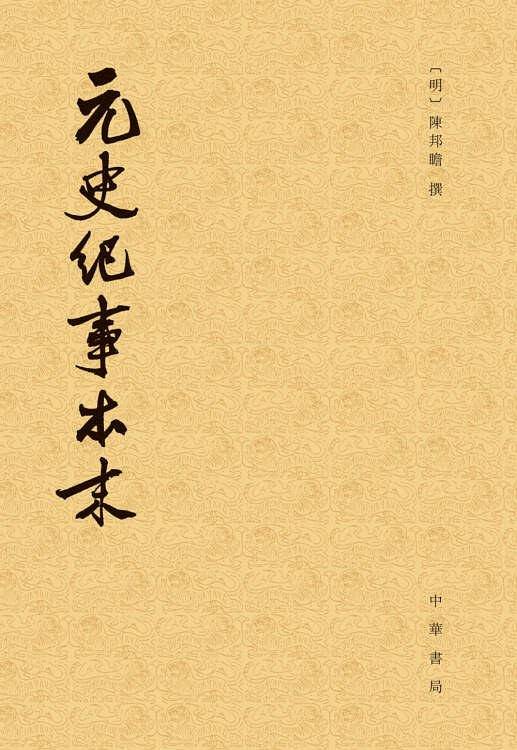 〔明〕陳邦瞻 撰
元史紀事本末
中華書局